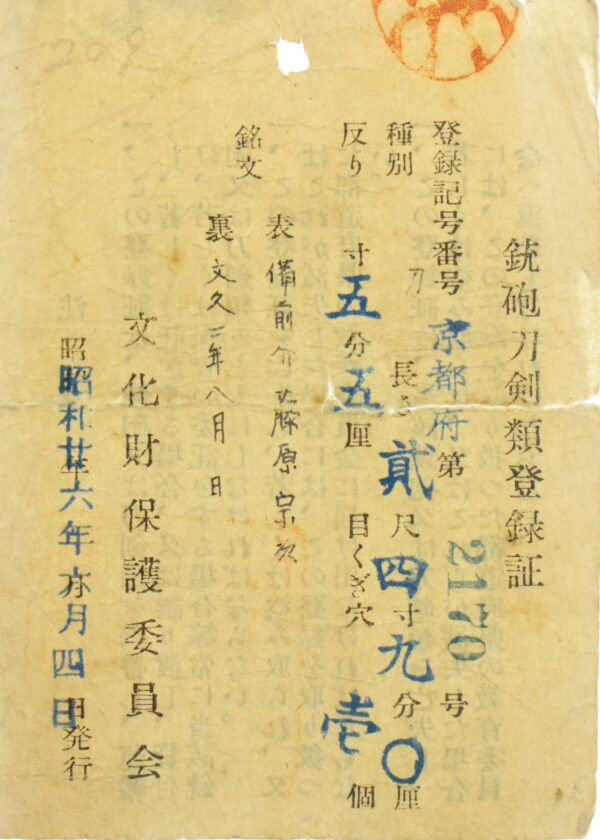 銃砲刀剣類登録証
登録記号番号 京都府 第 2170 号
種別 刀 長さ 貳 尺 四 寸 九 分 〇 厘
反り 寸 五 分 五 厘 目くぎ穴 壱 個
銘文 表 備前介藤原宗次
裏 文久二年八月 日
文化財保護委員会
昭和廿六年六月四日発行
209